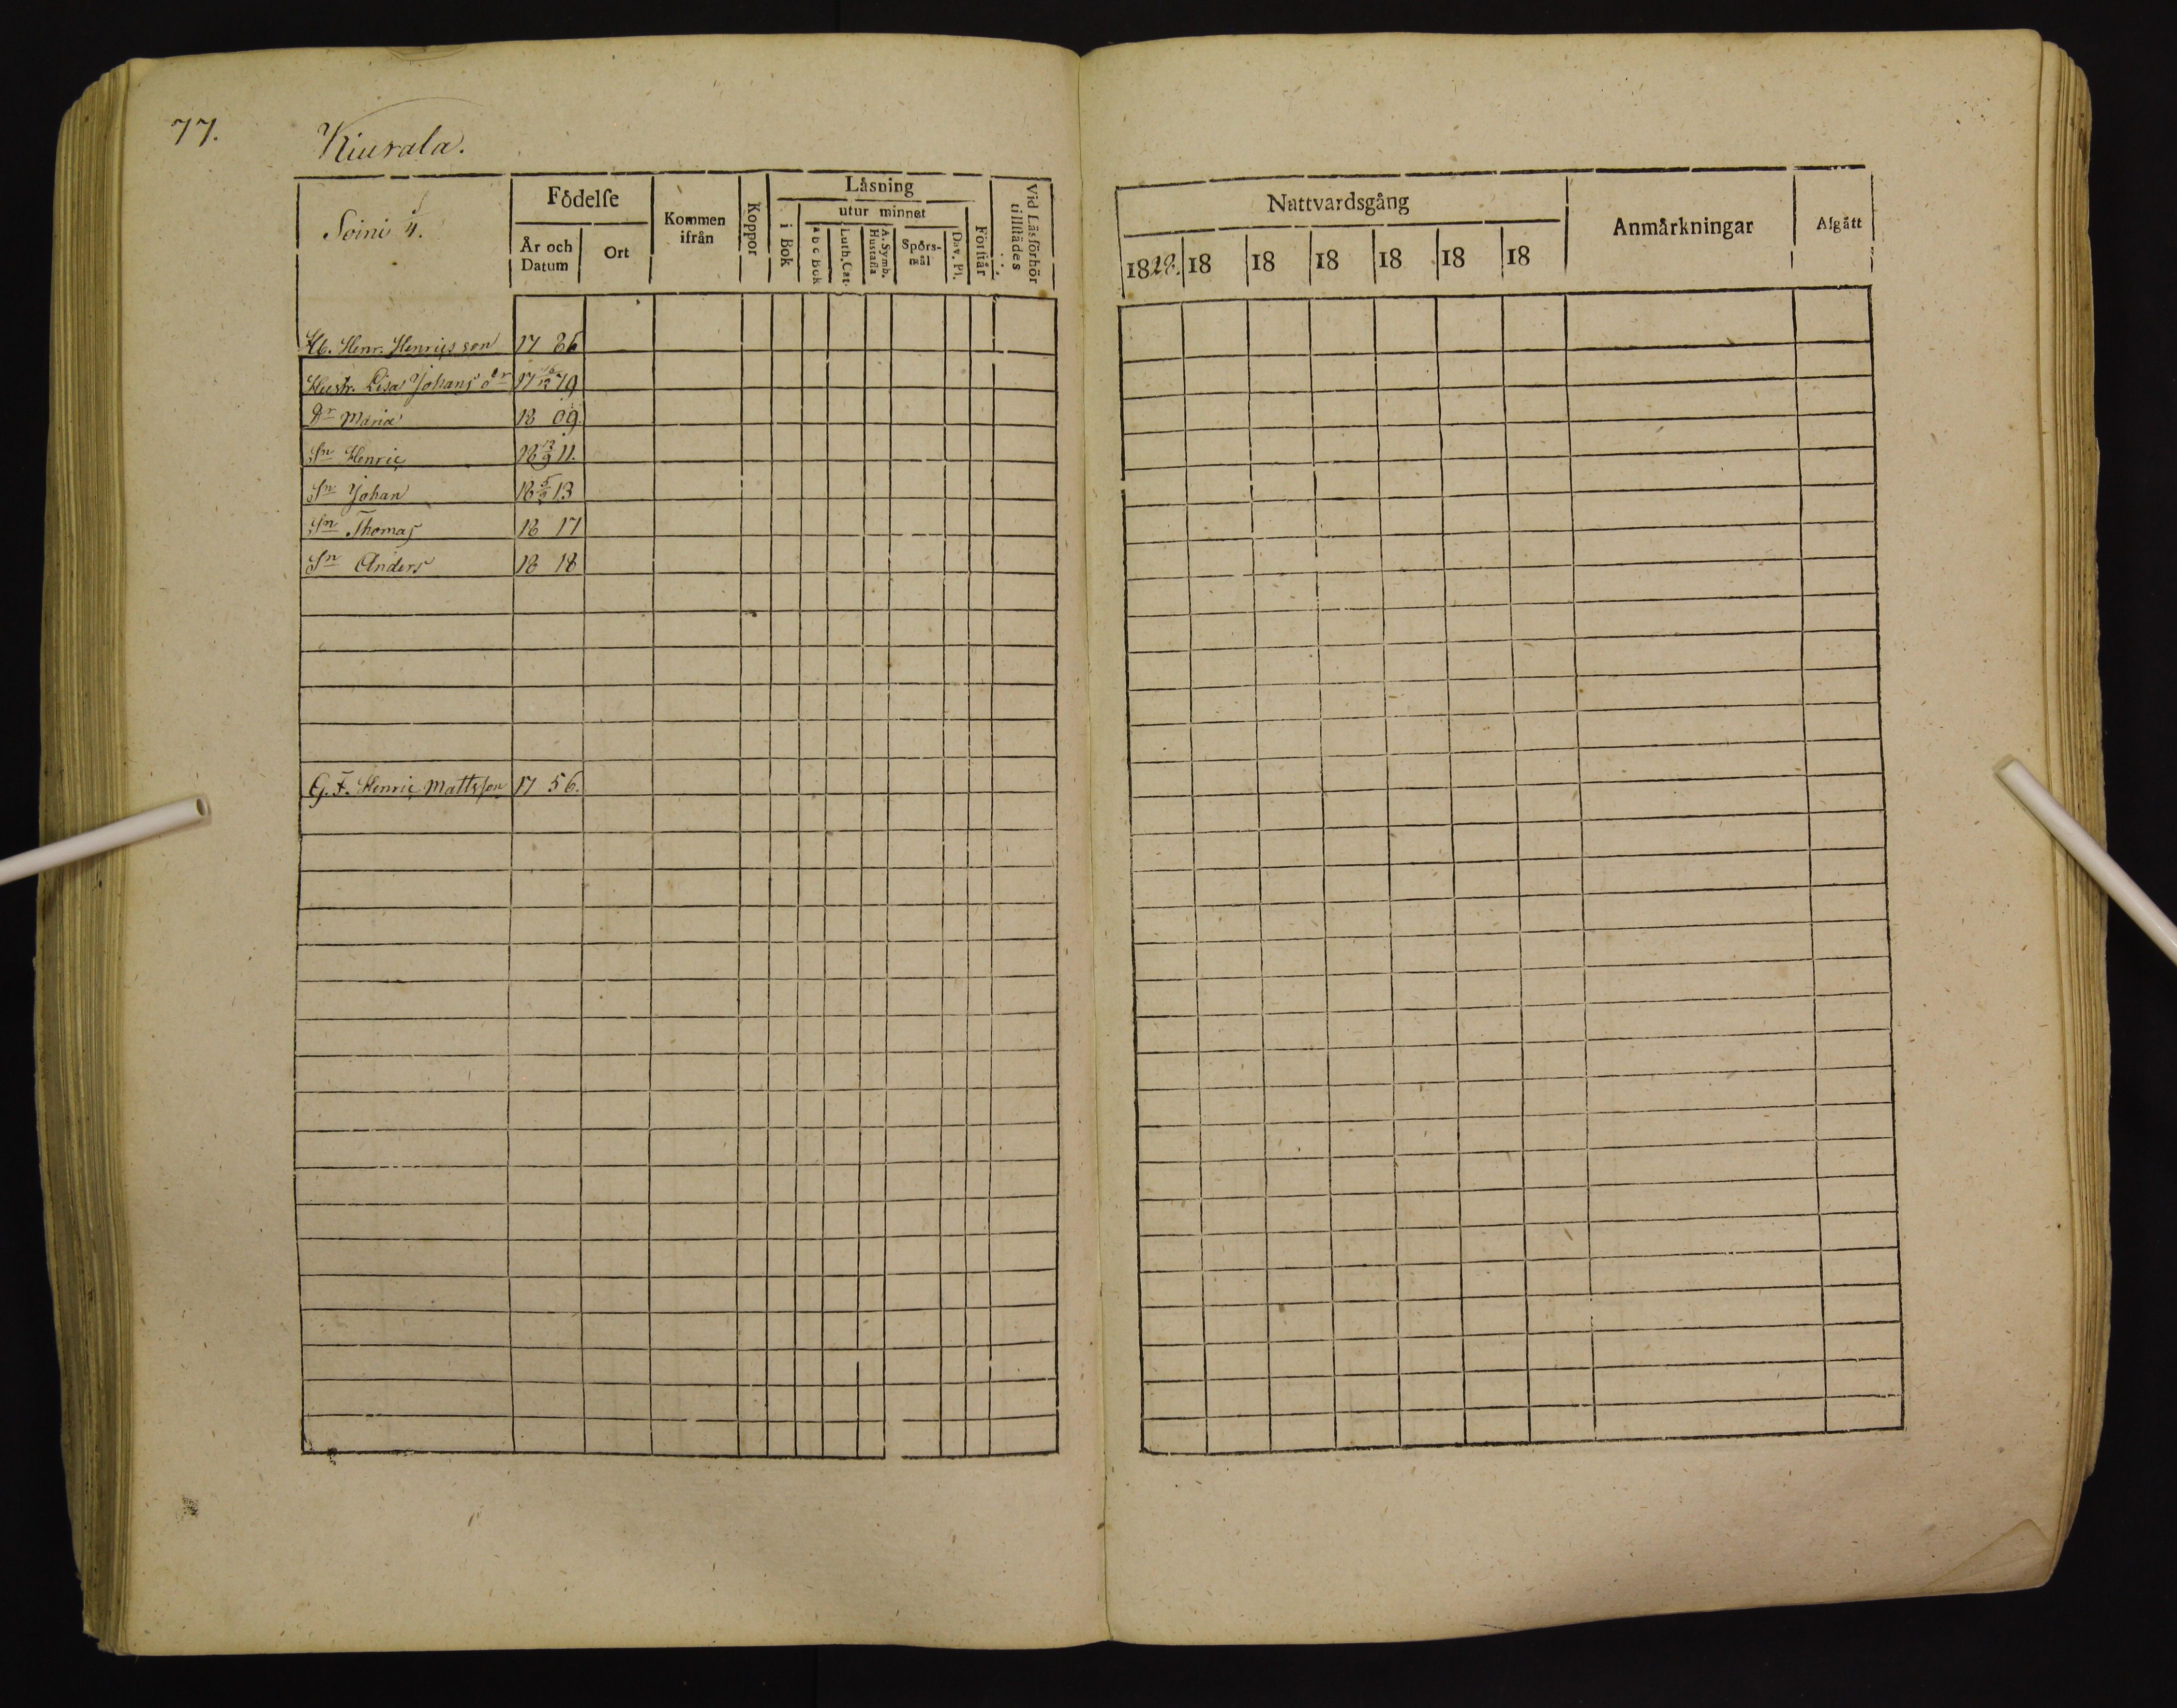 77.
Kiurala.
Soini 4.
Födelse
År och Datum
Ort
Kommen ifrån
Koppor
Läsning
i Bok
utur minnet
a b c Bok
Luth. Cat.
A. Symb. Hustafla
Spörsmål
Dav. Ps.
Förstår
Vid Läsförhör tillstädes
Nattvardsgång
1828. 18 18 18 18 18 18
Anmärkningar
Afgått
Henr. Henricsson 17 86
Hustr. Lisa Johans dr 17 79
Dr Maria 18 09.
Sn Henric 18 13/9 11.
Sn Johan 18 5/9 13
Sn Thomas 18 17
Sn Anders 18 18
G. F. Henric Mattsson 17 56.